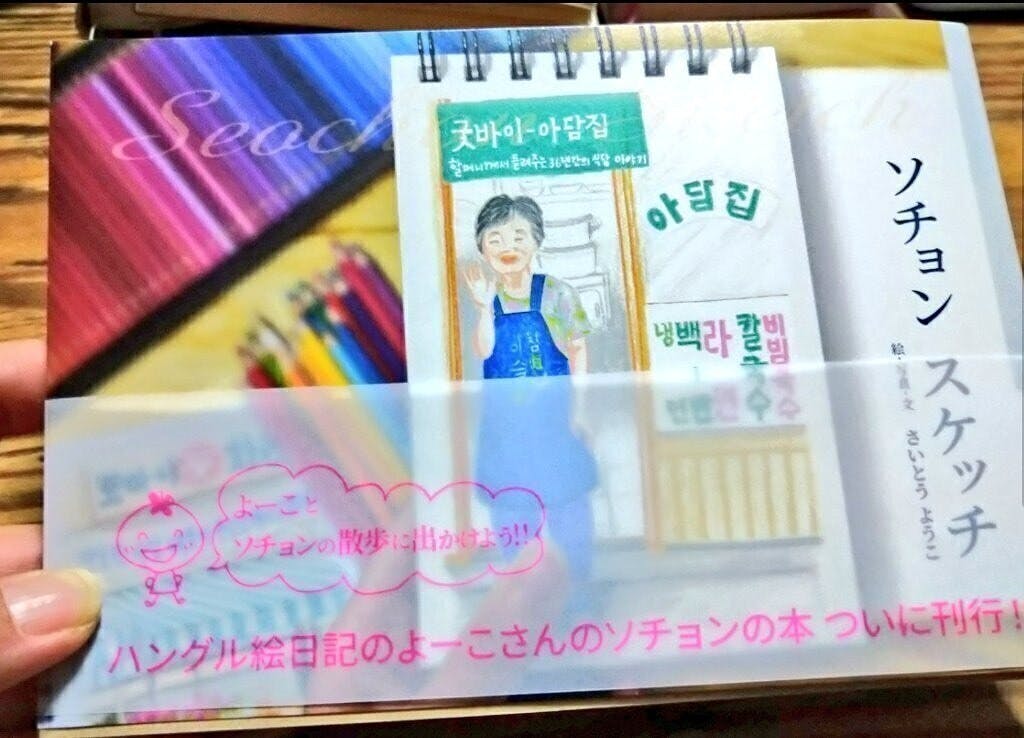 굿바이-아담집
할머니께서 들려주는 36년간의 식당 이야기
아담집
냉
백
라
칼국수
비빔국수
ソチョン
スケッチ
絵・写真・文 さいとう ようこ
よーこと
ソチョンの散歩に出かけよう!!
ハングル絵日記のよーこさんのソチョンの本 ついに刊行!